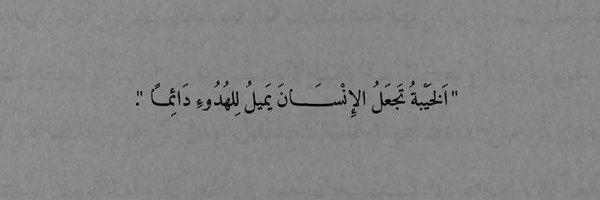 " اَلخَيْبةُ تَجعَلُ الإِنْســـــانَ يَميلُ لِلهُدُوءِ دَائِمًا ".